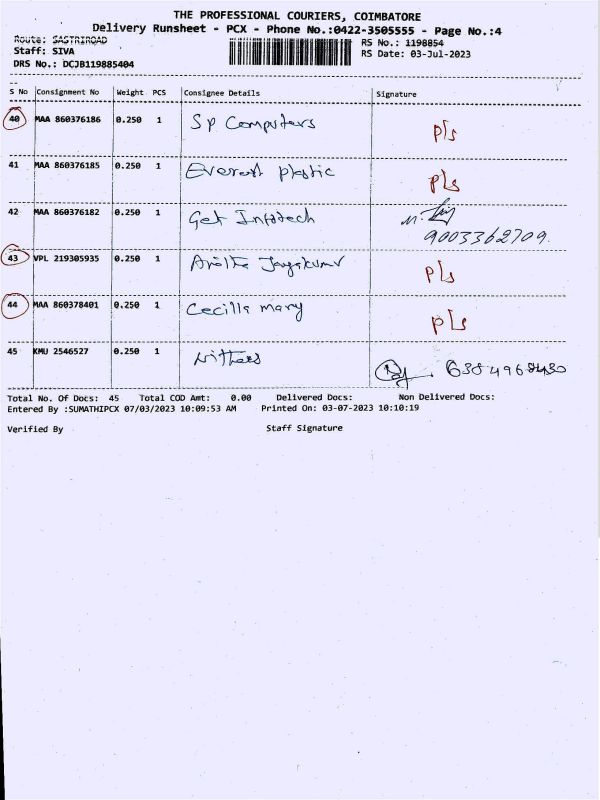 THE PROFESSIONAL COURIERS, COIMBATORE
Delivery Runsheet - PCX - Phone No.:0422-3505555 - Page No.:4
Route: SASTRIROAD
RS No.: 1198854
Staff: SIVA
RS Date: 03-Jul-2023
DRS No.: DCJB119885404
S No Consignment No Weight PCS Consignee Details Signature
40 MAA 860376186 0.250 1 Sp Computers pls
41 MAA 860376185 0.250 1 Everest plastic pls
42 MAA 860376182 0.250 1 Get Infotech
9003362709.
43 VPL 219305935 0.250 1 pls
44 MAA 860378401 0.250 1 Cecilla mary pls
45 KMU 2546527 0.250 1
Total No. Of Docs: 45 Total COD Amt: 0.00 Delivered Docs: Non Delivered Docs:
Entered By :SUMATHIPCX 07/03/2023 10:09:53 AM Printed On: 03-07-2023 10:10:19
Verified By Staff Signature